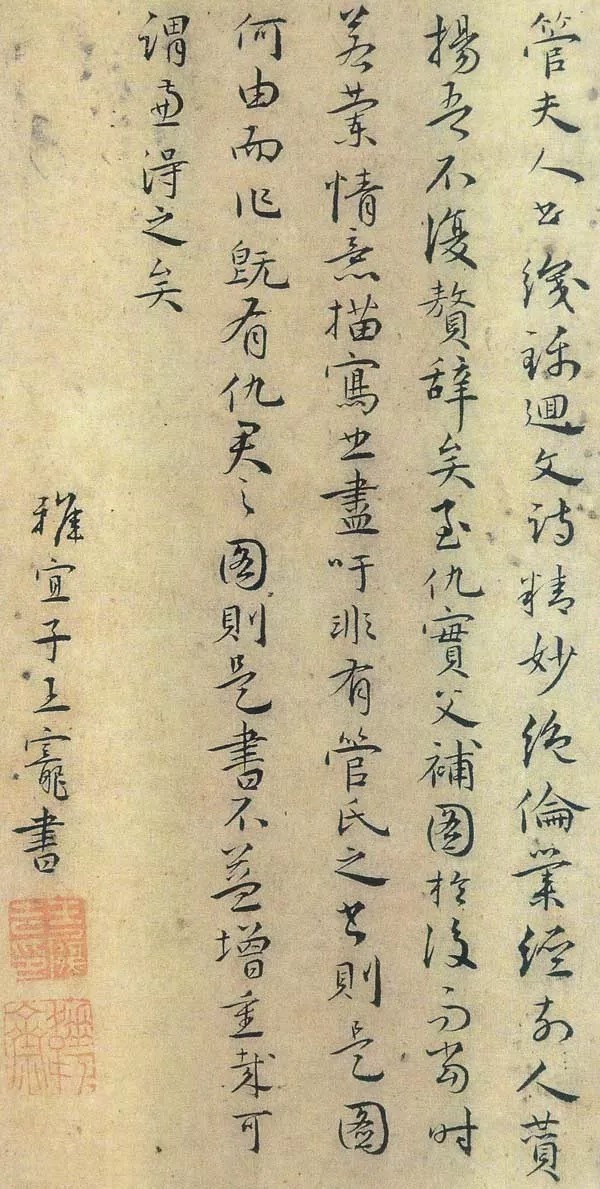 管夫人書織錦迴文詩精妙絕倫業經前人贊
揚吾不復贅辭矣至仇實父補圖於後而當時
若蘭情意描寫世盡吁非有管氏之書則是圖
何由而作既有仇君之圖則是書不益增重哉可
謂兩得之矣
雅宜子王寵書